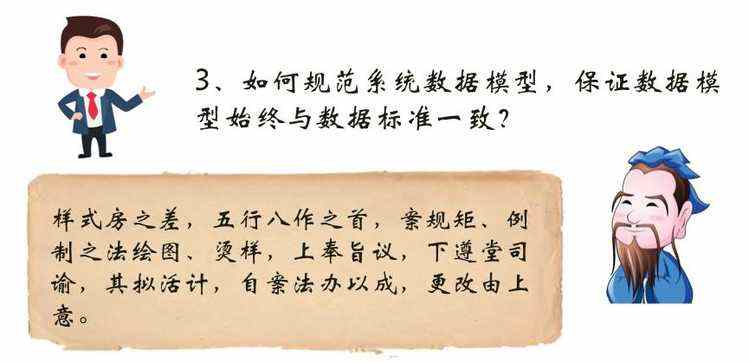 3、如何规范系统数据模型，保证数据模
型始终与数据标准一致？
样式房之差，五行八作之首，案规矩、例
制之法绘图、烫样，上奉旨议，下遵堂司
谕，其拟活计，自案法办以成，更改由上
意。